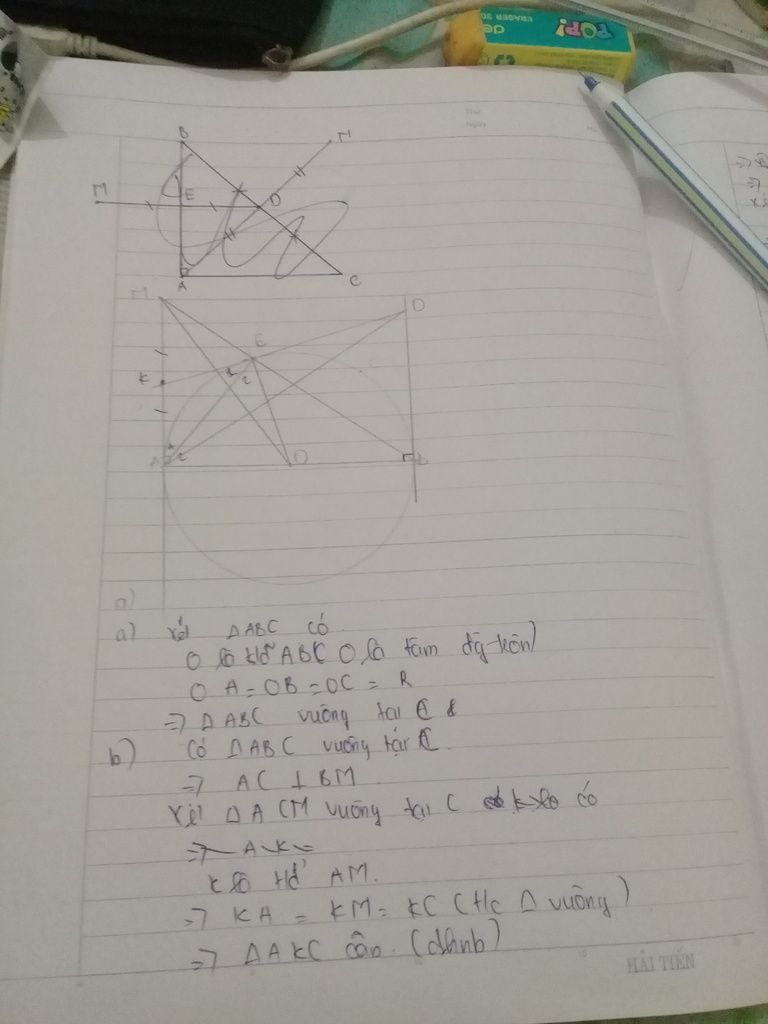 POP!
ERASER
B
M
M
E
D
A
C
M
D
C
K
A
O
B
a)
a) Xét ΔABC có
O là tđ AB (O là tâm đg tròn)
OA = OB = OC = R
=> ΔABC vuông tại C
b) Có ΔABC vuông tại C
=> AC ⊥ BM
Xét ΔACM vuông tại C có
=> AK =
K là tđ AM.
=> KA = KM = KC (t/c Δ vuông)
=> ΔAKC cân (dhnb)
HẢI TIẾN